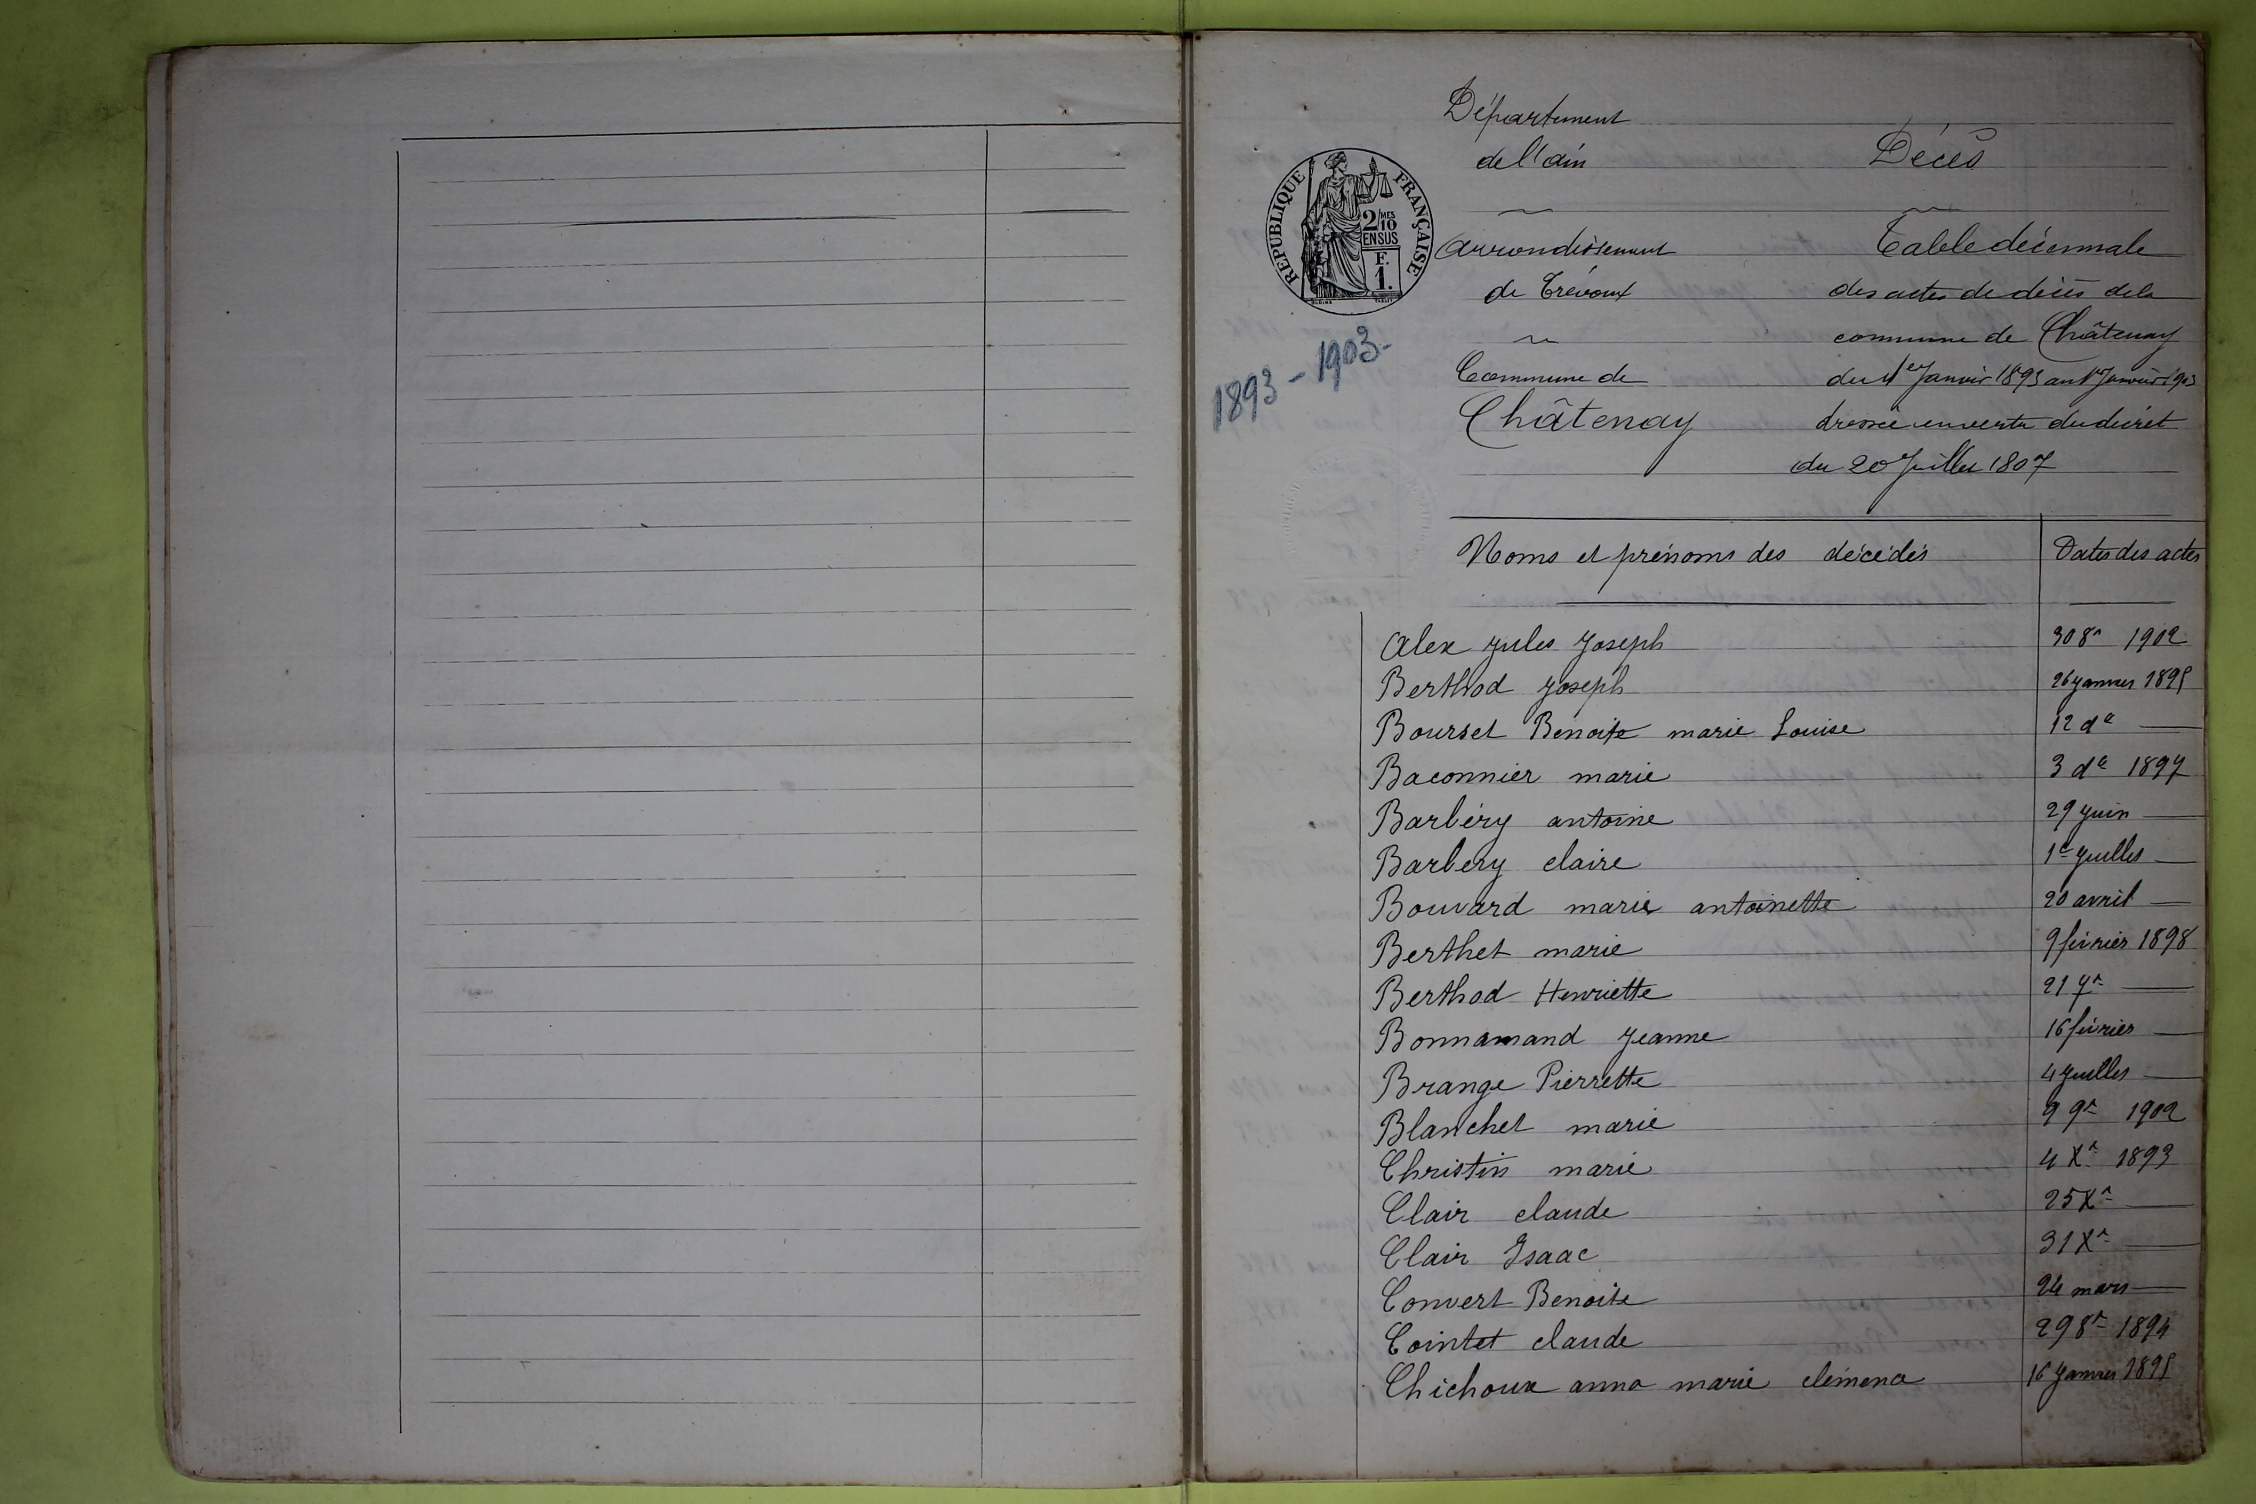 Département
de l'ain
Décès
RÉPUBLIQUE FRANÇAISE
2/10 MES
EN SUS
F.
1.
arrondissement
de Trévoux
Table décennale
des actes de décès de la
commune de Châtenay
du 1er Janvier 1893 au 1r Janvier 1903
dressée en vertu du décret
du 20 Juillet 1807
1893 - 1903-
Commune de
Châtenay
Noms et prénoms des décédés Dates des actes
Alex Jules Joseph 30 8r 1902
Berthod Joseph 26 Janvier 1895
Bourset Benoite marie Louise 12 do —
Baconnier marie 3 do 1897
Barbéry antoine 29 Juin —
Barbery claire 1er Juillet —
Bouvard marie antoinette 20 avril —
Berthet marie 9 février 1898
Berthod Henriette 21 7r —
Bonnamand Jeanne 16 février —
Brange Pierrette 4 Juillet —
Blanchet marie 9 9r 1902
Christin marie 4 Xr 1893
Clair claude 25 Xr —
Clair Isaac 31 Xr —
Convert Benoite 24 mars —
Cointet claude 29 8r 1894
Chichoux anna marie clémence 16 Janvier 1895